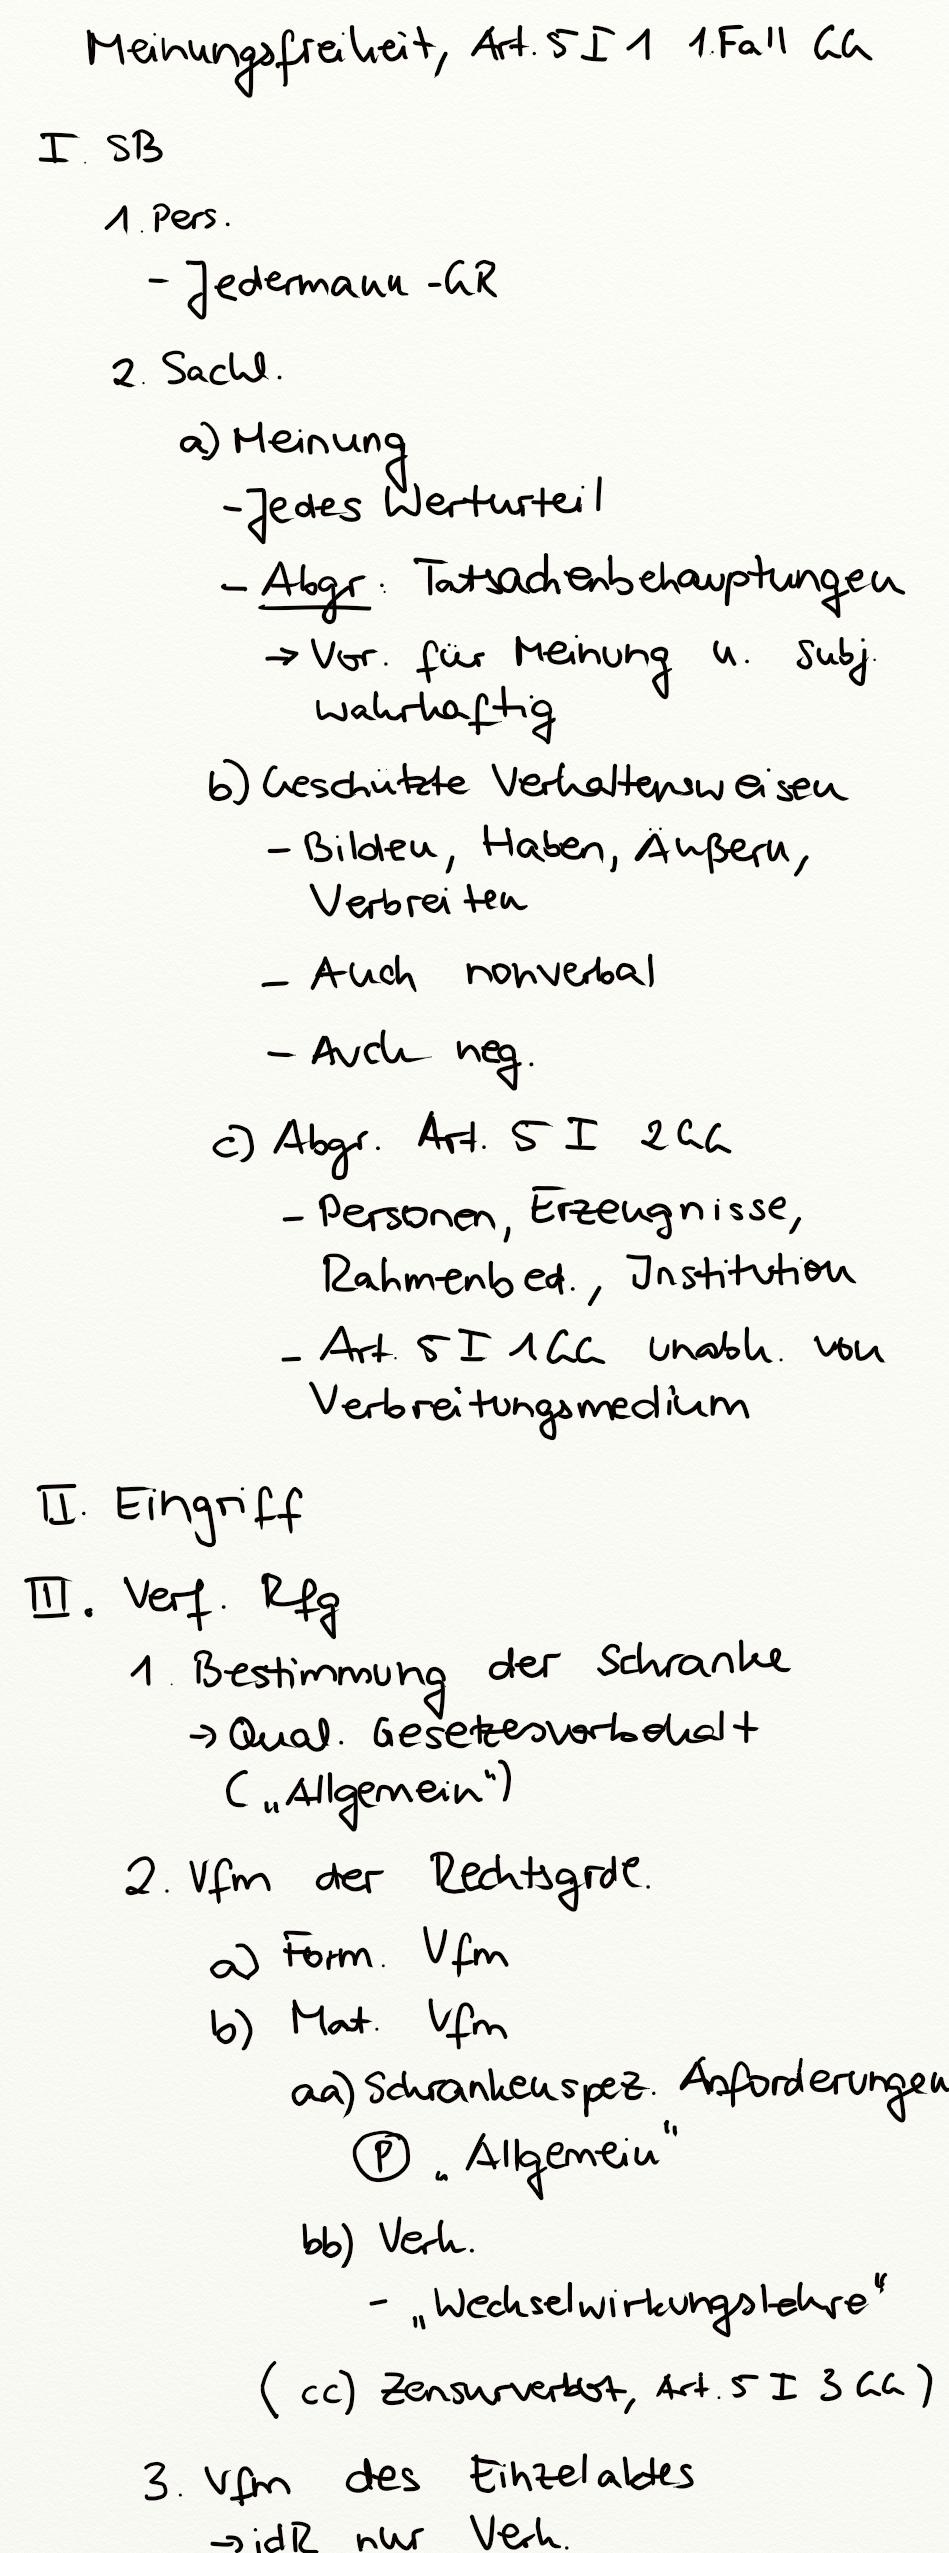 Meinungsfreiheit, Art. 5 I 1 1. Fall GG
I. SB
1. Pers.
- Jedermann-GR
2. Sachl.
a) Meinung
- Jedes Werturteil
- Abgr. Tatsachenbehauptungen
→ Vor. für Meinung u. subj.
wahrhaftig
b) Geschützte Verhaltensweisen
- Bilden, Haben, Äußern,
Verbreiten
- Auch nonverbal
- Auch neg.
c) Abgr. Art. 5 I 2 GG
- Personen, Erzeugnisse,
Rahmenbed., Institution
- Art. 5 I 1 GG unabh. von
Verbreitungsmedium
II. Eingriff
III. Verf. Rfg
1. Bestimmung der Schranke
→ Qual. Gesetzesvorbehalt
(„Allgemein“)
2. Vfm der Rechtsgrdl.
a) Form. Vfm
b) Mat. Vfm
aa) Schrankenspez. Anforderungen
(P) „Allgemein“
bb) Verh.
- „Wechselwirkungslehre“
(cc) Zensurverbot, Art. 5 I 3 GG)
3. Vfm des Einzelaktes
→ idR nur Verh.